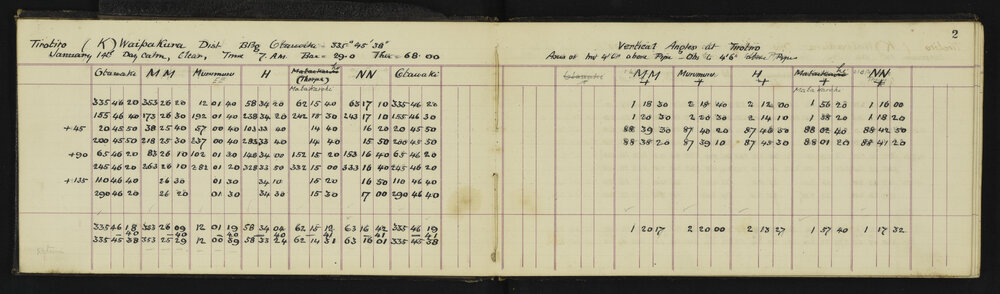 2
Tirotiro (K) Waipakura Dist Blfg Otauwiti - 335° 45' 38"
January 14th Day calm, Clear, Time 7 A.M. Bar = 29.0 Ther = 68.00
Otawaki M M Murumuru H Matarkarohe (Thorpes) NN Otawaki
Matakarohi
335 46 20 353 26 20 12 01 40 58 34 20 62 15 40 63 17 10 335 46 20
155 46 40 173 26 30 192 01 40 238 34 20 242 15 30 243 17 10 155 46 30
+45 20 45 50 38 25 40 57 00 40 103 33 40 14 40 16 20 20 45 50
200 45 50 218 25 30 237 00 40 283 33 40 14 40 15 50 200 45 50
+90 65 46 20 83 26 10 102 01 30 148 34 00 152 15 20 153 16 40 65 46 20
245 46 20 263 26 10 282 01 20 328 33 50 332 15 00 333 16 40 245 46 20
+135 110 46 40 26 30 01 30 34 10 15 20 16 50 110 46 40
290 46 20 26 20 01 30 34 30 15 30 17 00 290 46 40
335 46 18 353 26 09 12 01 19 58 34 04 62 15 12 63 16 42 335 46 19
-40 -40 -40 -40 -41 -41 -41
335 45 38 353 25 29 12 00 39 58 33 24 62 14 31 63 16 01 335 45 38
Vertical Angles at Tirotiro
Axis of Inst 4'6" above Pipe - Obs to 4'6" above Pipes
Otawaki M M Murumuru H Matarkarohe NN
Matakarohi
1 18 30 2 18 40 2 12 00 1 56 20 1 16 00
1 20 30 2 20 30 2 14 10 1 38 20 1 18 20
88 39 30 87 40 20 87 46 50 88 02 40 88 42 50
88 38 20 87 39 10 87 45 30 88 01 20 88 41 20
1 20 17 2 20 00 2 13 27 1 57 40 1 17 32